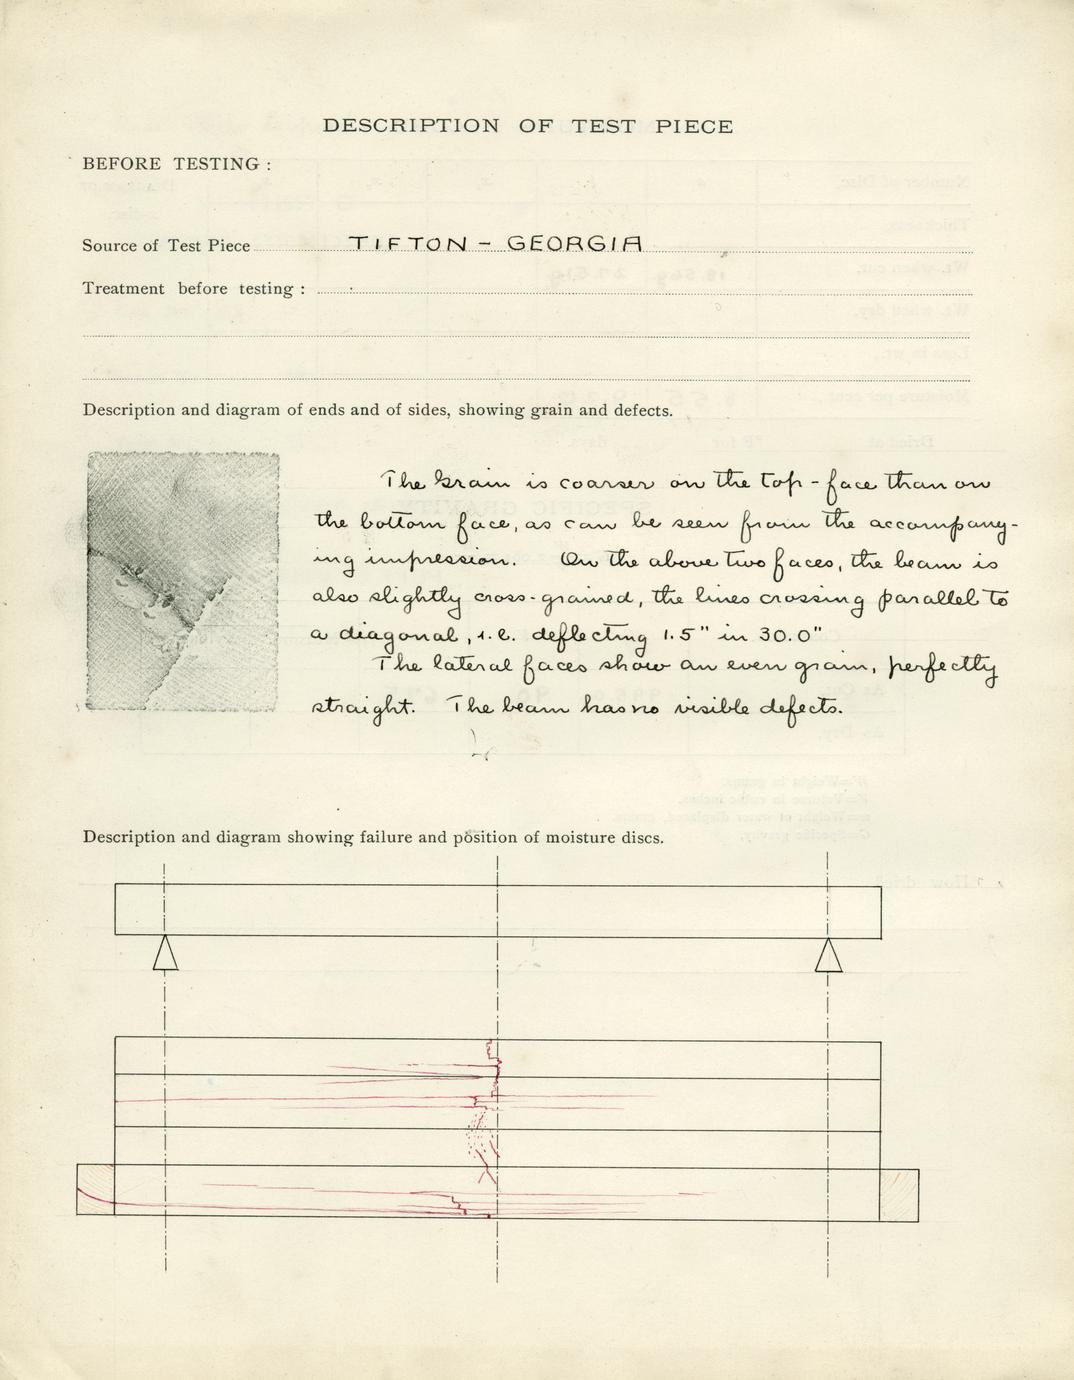 DESCRIPTION OF TEST PIECE
BEFORE TESTING :
Source of Test Piece TIFTON - GEORGIA
Treatment before testing :
Description and diagram of ends and of sides, showing grain and defects.
The grain is coarser on the top-face than on
the bottom face, as can be seen from the accompany-
ing impression. On the above two faces, the beam is
also slightly cross-grained, the lines crossing parallel to
a diagonal, i.e. deflecting 1.5" in 30.0"
The lateral faces show an even grain, perfectly
straight. The beam has no visible defects.
Description and diagram showing failure and position of moisture discs.